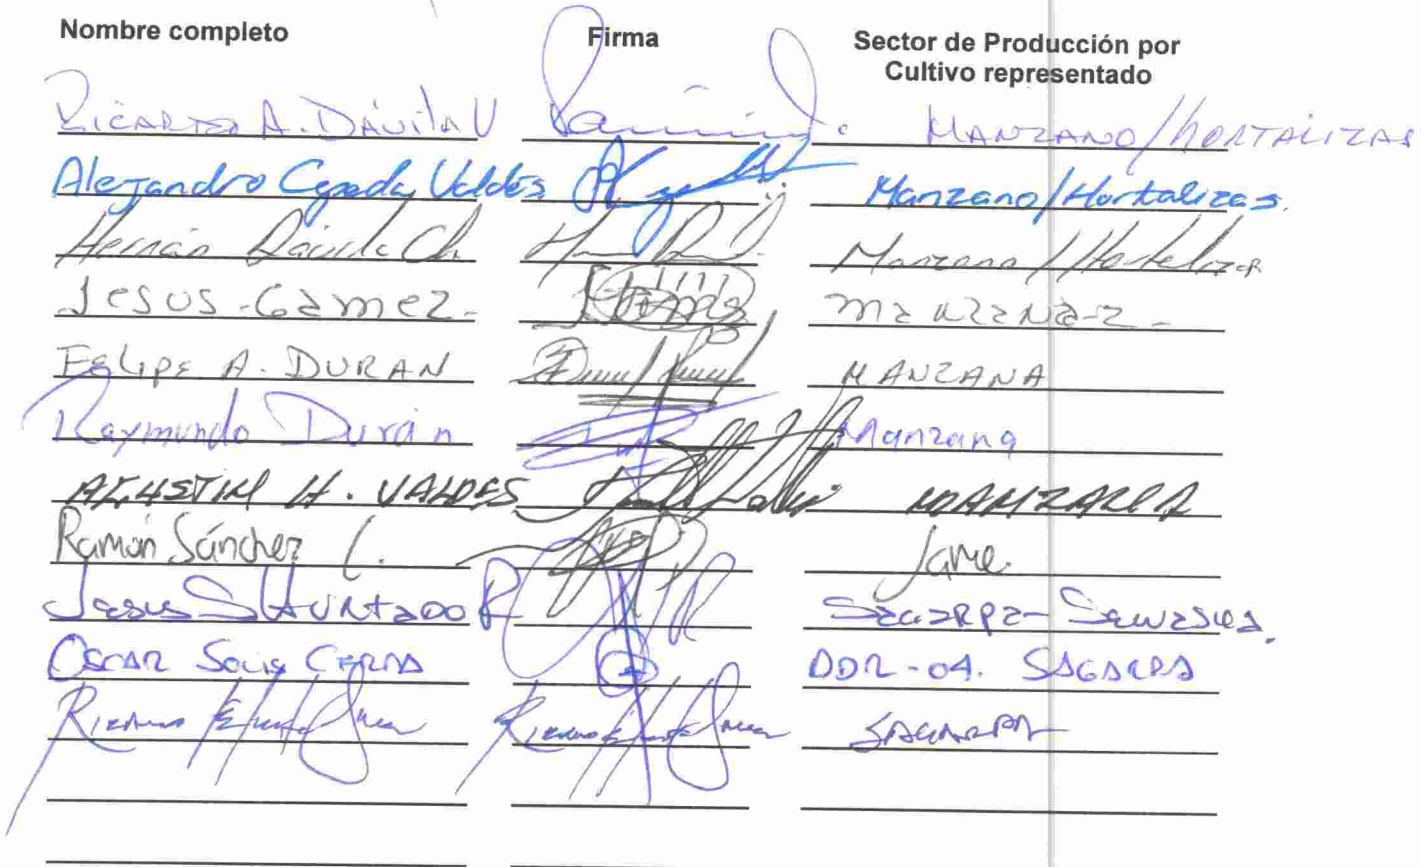 Nombre completo Firma Sector de Producción por
Cultivo representado
Ricardo A. Dávila V MANZANO/HORTALIZAS
Alejandro Cepeda Valdés Manzano/Hortalizas.
Hernán Dávila Ch. Manzano/Hortalizas
Jesus-Gamez- manzana-
FELIPE A. DURAN MANZANA
Raymundo Durán Manzana
AGUSTIN H. VALDES MANZANA
Ramón Sánchez
Jesus S HURTADO R Sagarpa-
OSCAR Solis CERNA DDR-04. SAGARPA
Ricardo SAGARPA